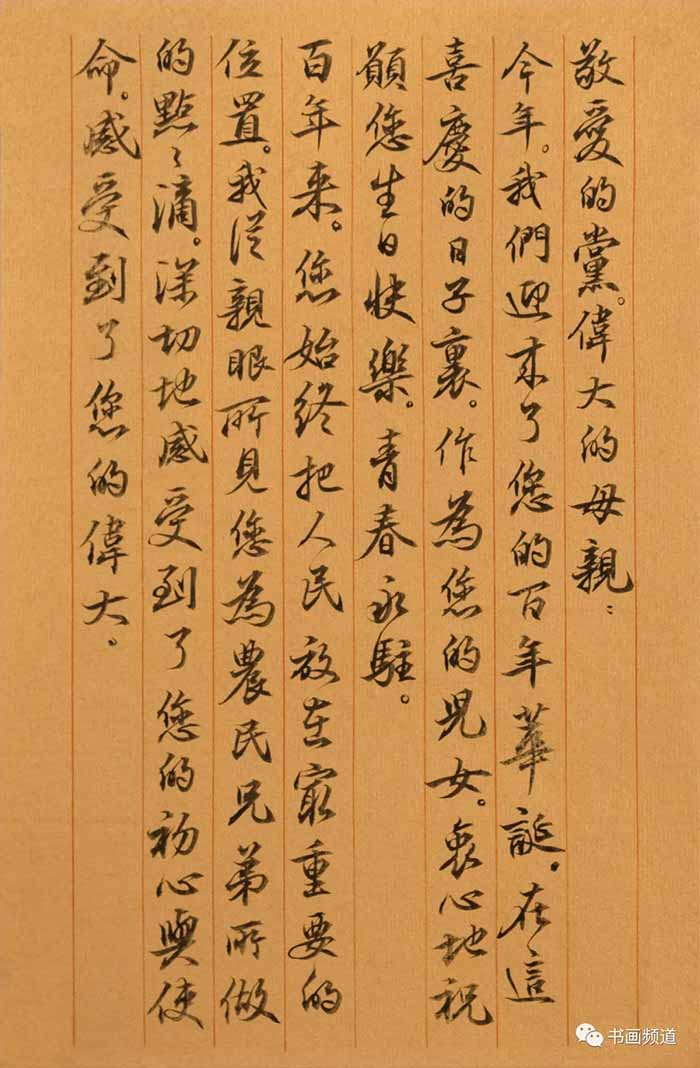 敬爱的黨。偉大的母親：
今年。我們迎来了您的百年華誕。在這
喜慶的日子裏。作為您的児女。衷心地祝
願您生日快樂。青春永駐。
百年来。您始终把人民放在寂重要的
位置。我従親眼所見您為農民兄弟所做
的點々滴。深切地感受到了您的初心與使
命。感受到了您的偉大。
书画频道